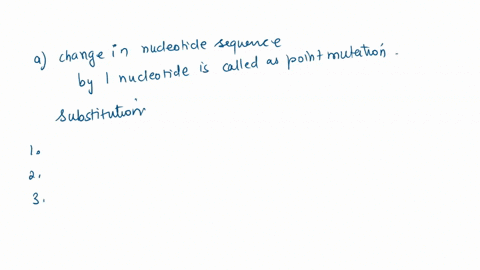 a) change in nucleotide sequence
by 1 nucleotide is called as point mutation.
Substitution
1.
2.
3.